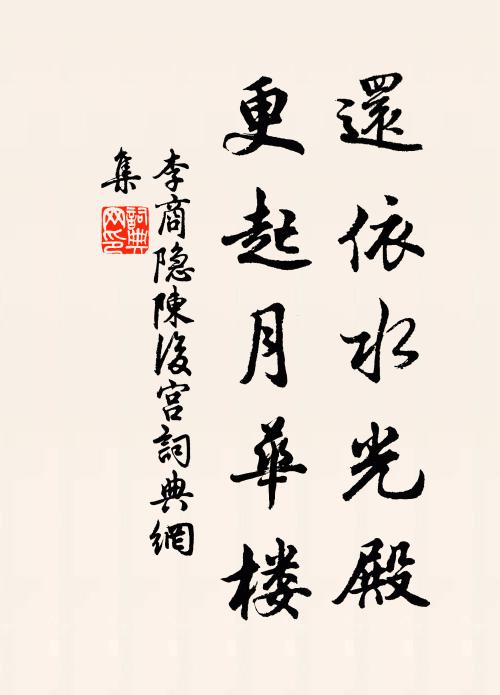 還依水光殿
更起月華楼
李商隐陳後宮詞典網
集
詞典
网印